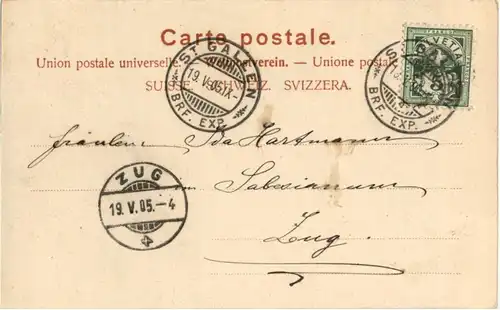 Carte postale.
Union postale universelle. Weltpostverein. — Unione postale
SUISSE. SCHWEIZ. SVIZZERA.
ST. GALLEN
19. V. 05. IX–
BRF. EXP.
HELVETIA
ST. GALLEN
BRF. EXP.
Fräulein Ida Hartmann
Salesianum
Zug.
ZUG
19. V. 05. –4